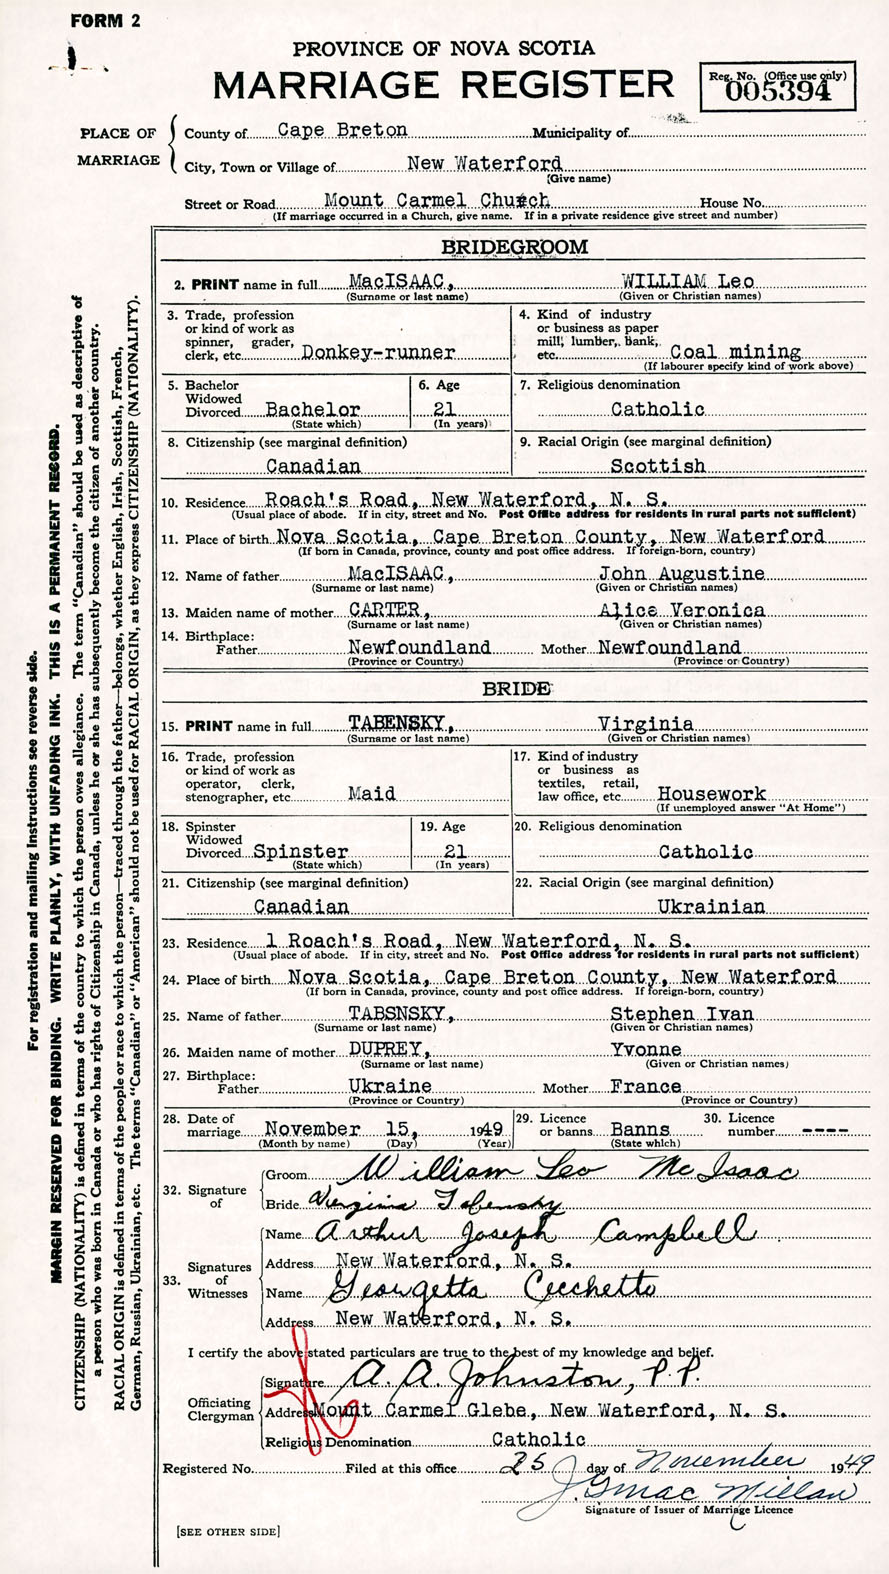 FORM 2
PROVINCE OF NOVA SCOTIA
MARRIAGE REGISTER
Reg. No. (Office use only)
005394
PLACE OF MARRIAGE
County of Cape Breton Municipality of
City, Town or Village of New Waterford
(Give name)
Street or Road Mount Carmel Church House No.
(If marriage occurred in a Church, give name. If in a private residence give street and number)
BRIDEGROOM
2. PRINT name in full MacISAAC, WILLIAM Leo
(Surname or last name) (Given or Christian names)
3. Trade, profession or kind of work as spinner, grader, clerk, etc. Donkey-runner
4. Kind of industry or business as paper mill, lumber, bank, etc. Coal mining
(If labourer specify kind of work above)
5. Bachelor Widowed Divorced Bachelor
(State which)
6. Age 21
(In years)
7. Religious denomination
Catholic
8. Citizenship (see marginal definition)
Canadian
9. Racial Origin (see marginal definition)
Scottish
10. Residence Roach's Road, New Waterford, N. S.
(Usual place of abode. If in city, street and No. Post Office address for residents in rural parts not sufficient)
11. Place of birth Nova Scotia, Cape Breton County, New Waterford
(If born in Canada, province, county and post office address. If foreign-born, country)
12. Name of father MacISAAC, John Augustine
(Surname or last name) (Given or Christian names)
13. Maiden name of mother CARTER, Alice Veronica
(Surname or last name) (Given or Christian names)
14. Birthplace:
Father Newfoundland Mother Newfoundland
(Province or Country) (Province or Country)
BRIDE
15. PRINT name in full TABENSKY, Virginia
(Surname or last name) (Given or Christian names)
16. Trade, profession or kind of work as operator, clerk, stenographer, etc. Maid
17. Kind of industry or business as textiles, retail, law office, etc. Housework
(If unemployed answer "At Home")
18. Spinster Widowed Divorced Spinster
(State which)
19. Age 21
(In years)
20. Religious denomination
Catholic
21. Citizenship (see marginal definition)
Canadian
22. Racial Origin (see marginal definition)
Ukrainian
23. Residence 1 Roach's Road, New Waterford, N. S.
(Usual place of abode. If in city, street and No. Post Office address for residents in rural parts not sufficient)
24. Place of birth Nova Scotia, Cape Breton County, New Waterford
(If born in Canada, province, county and post office address. If foreign-born, country)
25. Name of father TABSNSKY, Stephen Ivan
(Surname or last name) (Given or Christian names)
26. Maiden name of mother DUPREY, Yvonne
(Surname or last name) (Given or Christian names)
27. Birthplace:
Father Ukraine Mother France
(Province or Country) (Province or Country)
28. Date of marriage November 15, 1949
(Month by name) (Day) (Year)
29. Licence or banns Banns
(State which)
30. Licence number ----
32. Signature of
Groom William Leo McIsaac
Bride Virginia Tabensky
33. Signatures of Witnesses
Name Arthur Joseph Campbell
Address New Waterford, N. S.
Name Georgetta Cecchetto
Address New Waterford, N. S.
I certify the above stated particulars are true to the best of my knowledge and belief.
Officiating Clergyman
Signature A. A. Johnston, P.P.
Address Mount Carmel Glebe, New Waterford, N. S.
Religious Denomination Catholic
Registered No. Filed at this office 25 day of November 1949
J. G. MacMillan
Signature of Issuer of Marriage Licence
[SEE OTHER SIDE]
For registration and mailing instructions see reverse side.
MARGIN RESERVED FOR BINDING. WRITE PLAINLY, WITH UNFADING INK. THIS IS A PERMANENT RECORD.
CITIZENSHIP (NATIONALITY) is defined in terms of the country to which the person owes allegiance. The term "Canadian" should be used as descriptive of
a person who was born in Canada or who has rights of Citizenship in Canada, unless he or she has subsequently become the citizen of another country.
RACIAL ORIGIN is defined in terms of the people or race to which the person—traced through the father—belongs, whether English, Irish, Scottish, French,
German, Russian, Ukrainian, etc. The terms "Canadian" or "American" should not be used for RACIAL ORIGIN, as they express CITIZENSHIP (NATIONALITY).